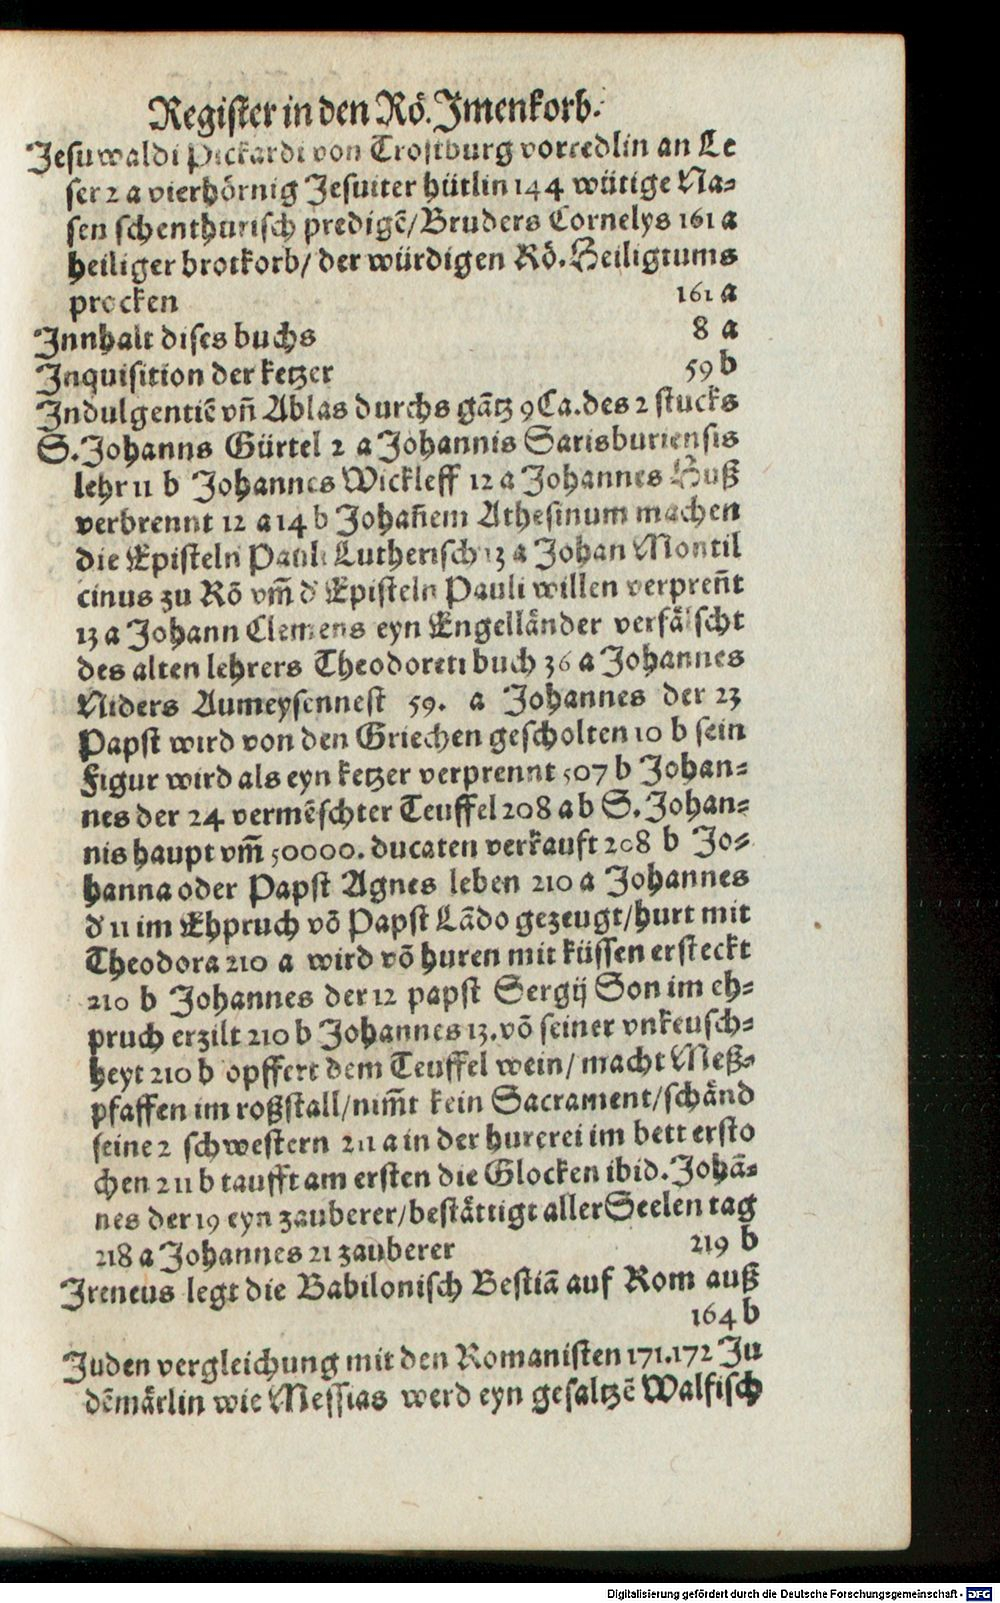 Register in den Rö. Jmenkorb.
Jesuwaldi Pickardi von Trostburg vorredlin an Le
ser 2 a vierhörnig Jesuiter hütlin 144 wütige Na⸗
sen schenthurisch predigẽ/Bruders Cornelys 161 a
heiliger brotkorb/ der würdigen Rö. Heiligtums
procken 161 a
Jnnhalt dises buchs 8 a
Jnquisition der ketzer 59 b
Jndulgentiẽ vñ Ablas durchs gãtz 9 Ca. des 2 stucks
S. Johanns Gürtel 2 a Johannis Sarisburiensis
lehr 11 b Johannes Wickleff 12 a Johannes Huß
verbrennt 12 a 14 b Johañem Athesinum machen
die Episteln Pauli Lutherisch 13 a Johan Montil
cinus zu Rõ vm̃ d' Episteln Pauli willen verpreñt
13 a Johann Clemens eyn Engelländer verfälscht
des alten lehrers Theodoreti buch 36 a Johannes
Niders Aumeysennest 59. a Johannes der 23
Papst wird von den Griechen gescholten 10 b sein
Figur wird als eyn ketzer verprennt 507 b Johan⸗
nes der 24 vermẽschter Teuffel 208 a b S. Johan⸗
nis haupt vm̃ 50000. ducaten verkauft 208 b Jo⸗
hanna oder Papst Agnes leben 210 a Johannes
d' 11 im Ehpruch võ Papst Lãdo gezeugt/hurt mit
Theodora 210 a wird võ huren mit küssen ersteckt
210 b Johannes der 12 papst Sergij Son im eh⸗
pruch erzilt 210 b Johannes 13. võ seiner vnkeusch⸗
heyt 210 b opffert dem Teuffel wein/ macht Meß⸗
pfaffen im roßstall/nim̃t kein Sacrament/schänd
seine 2 schwestern 211 a in der hurerei im bett ersto
chen 211 b taufft am ersten die Glocken ibid. Johã⸗
nes der 19 eyn zauberer/bestättigt aller Seelen tag
218 a Johannes 21 zauberer 219 b
Jreneus legt die Babilonisch Bestiã auf Rom auß
164 b
Juden vergleichung mit den Romanisten 171.172 Ju
dẽmärlin wie Messias werd eyn gesaltzẽ Walfisch
Digitalisierung gefördert durch die Deutsche Forschungsgemeinschaft - DFG